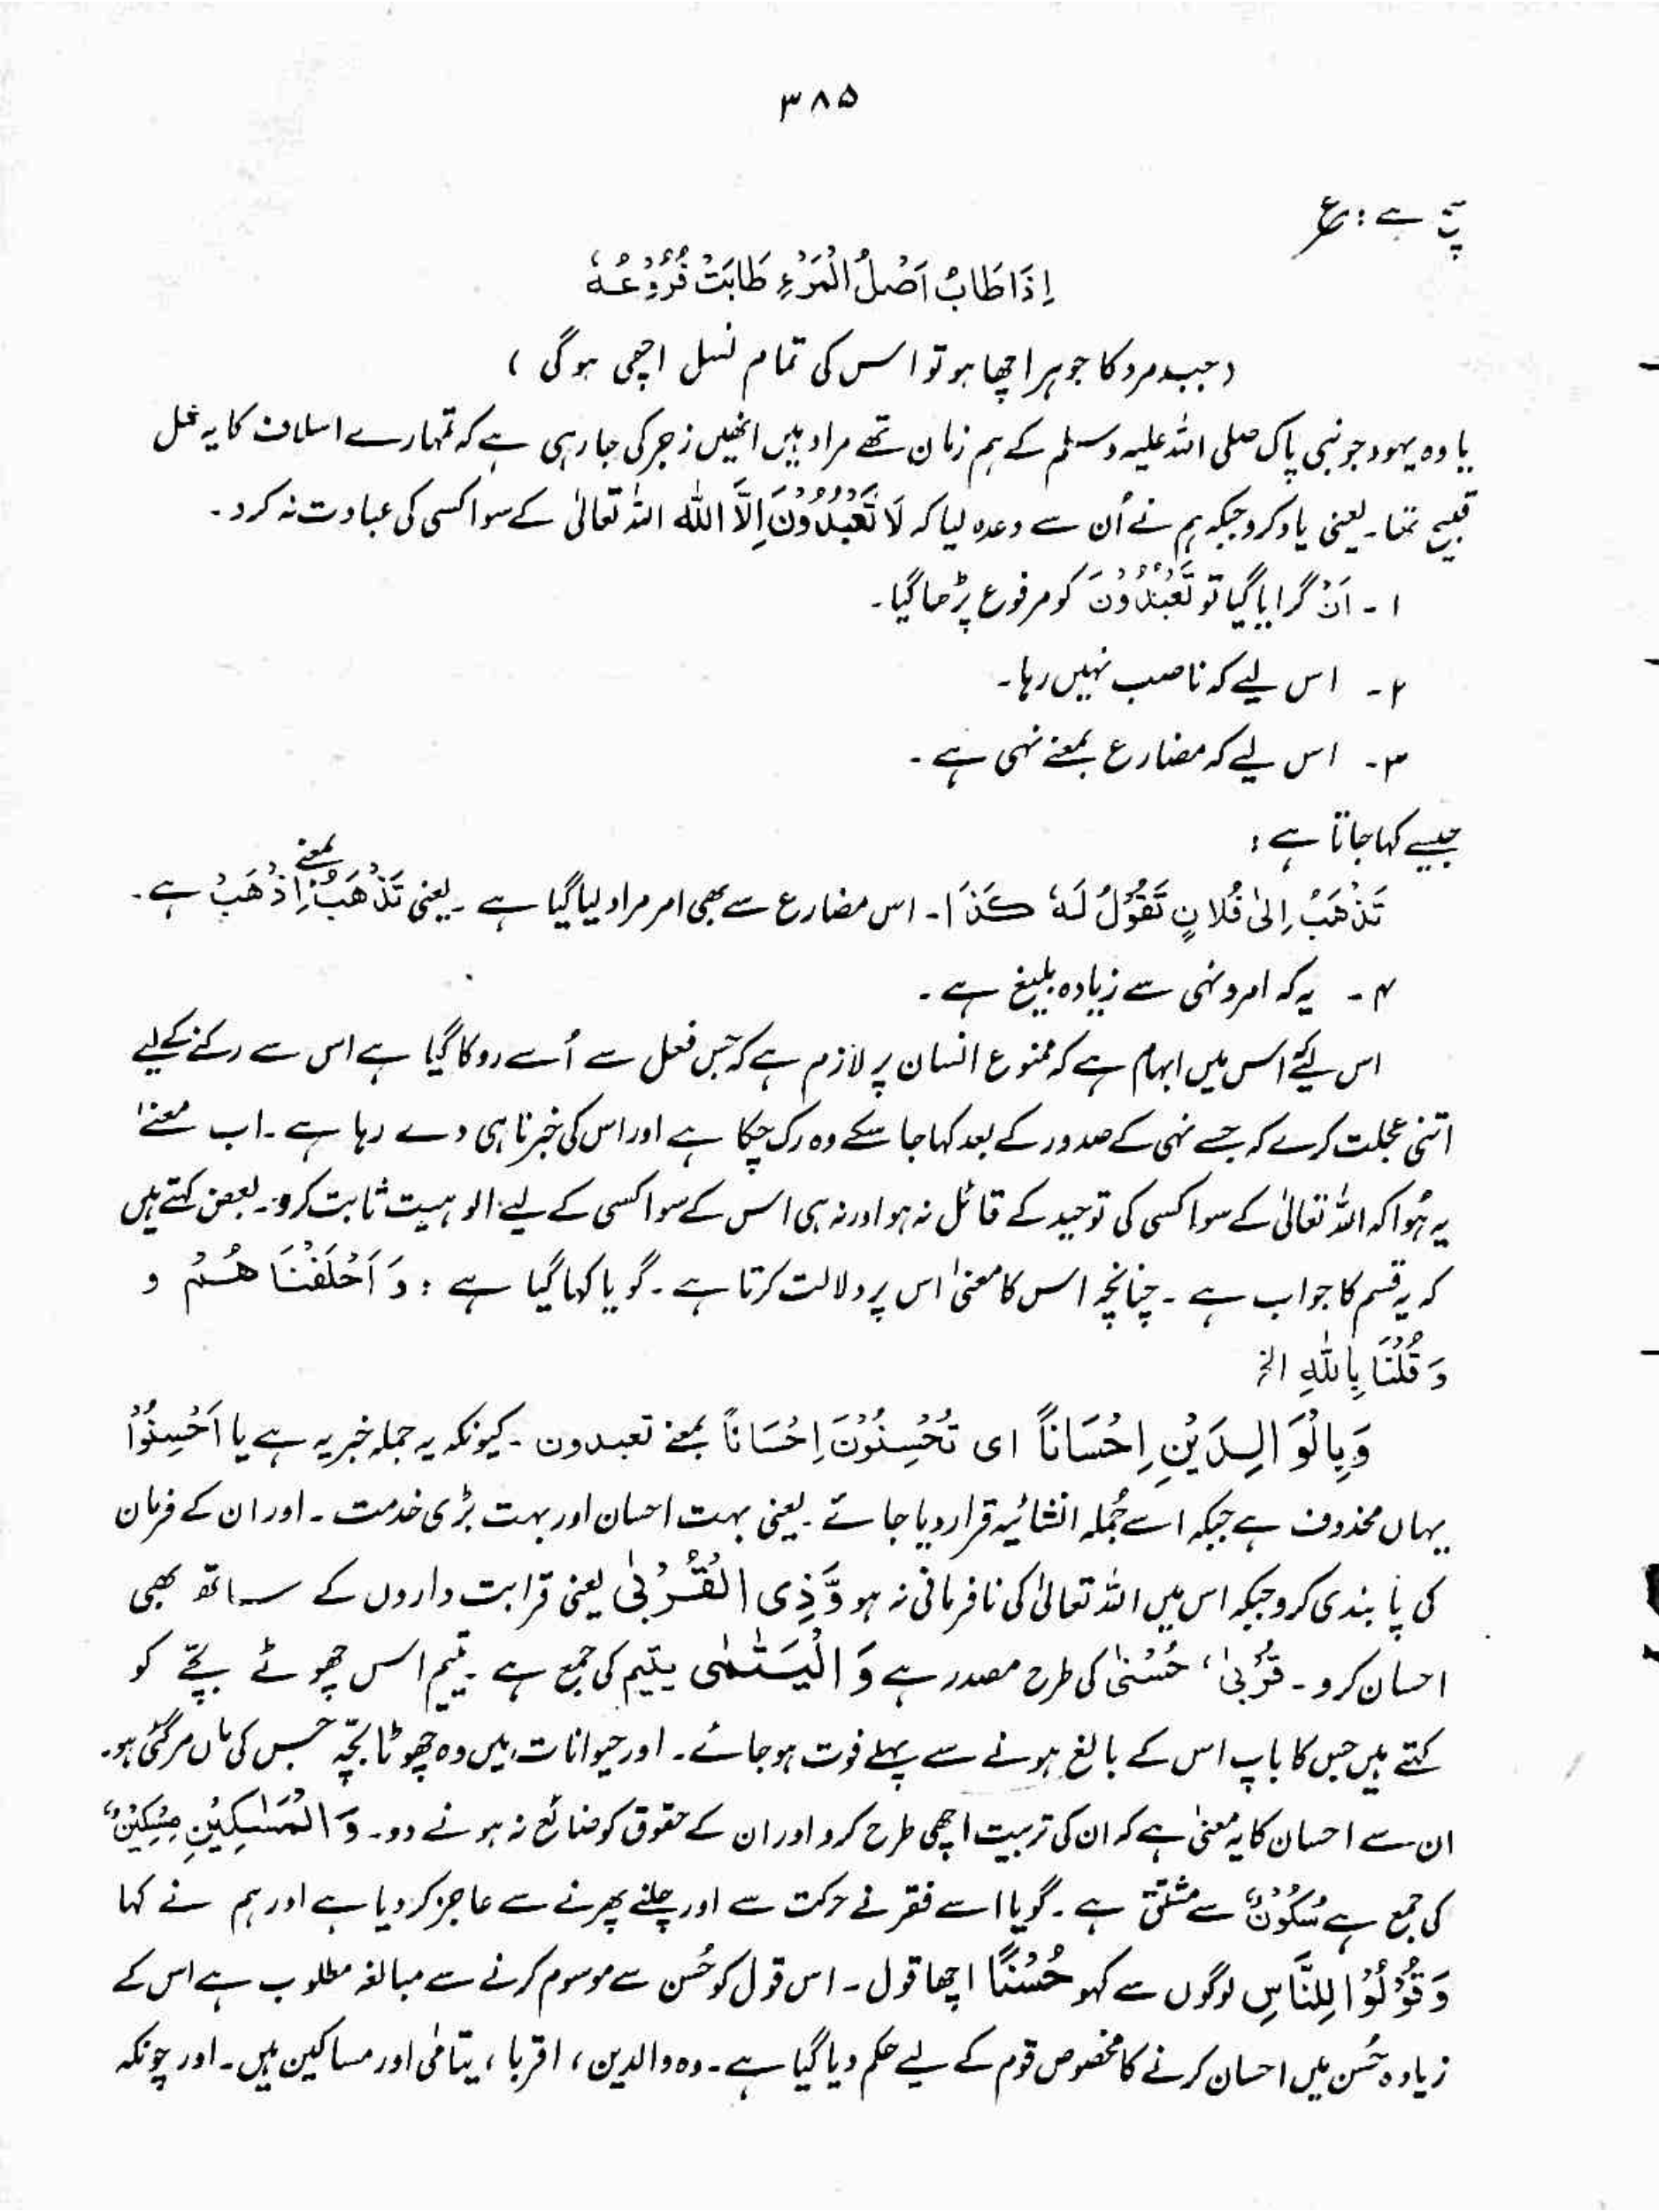 ۳۸۵
سچ ہے : ع
اِذَا طَابَ اَصْلُ الْمَرْءِ طَابَتْ فُرُوْعُهٗ
(جب مرد کا جوہر اچھا ہو تو اس کی تمام نسل اچھی ہوگی)
یا وہ یہود جو نبی پاک صلی اللہ علیہ وسلم کے ہم زمان تھے مراد ہیں انھیں زجر کی جا رہی ہے کہ تمہارے اسلاف کا یہ عمل
قبیح تھا۔ یعنی یاد کرو جبکہ ہم نے اُن سے وعدہ لیا کہ لَا تَعْبُدُوْنَ اِلَّا اللّٰہَ اللہ تعالیٰ کے سوا کسی کی عبادت نہ کرو۔
۱ - اَنْ گرایا گیا تو تَعْبُدُوْنَ کو مرفوع پڑھا گیا۔
۲ - اس لیے کہ ناصب نہیں رہا۔
۳ - اس لیے کہ مضارع بمعنے نہی ہے۔
جیسے کہا جاتا ہے :
تَذْهَبُ اِلٰى فُلَانٍ تَقُوْلُ لَهٗ كَذَا۔ اس مضارع سے بھی امر مراد لیا گیا ہے۔ یعنی تَذْهَبُ بمعنے اِذْهَبْ ہے۔
۴ - یہ کہ امر و نہی سے زیادہ بلیغ ہے۔
اس لیے کہ اس میں ابہام ہے کہ ممنوع انسان پر لازم ہے کہ جس فعل سے اُسے روکا گیا ہے اس سے رکنے کے لیے
اتنی عجلت کرے کہ جسے نہی کے صدور کے بعد کہا جا سکے وہ رک چکا ہے اور اس کی خبر ناہی دے رہا ہے۔ اب معنےٰ
یہ ہُوا کہ اللہ تعالیٰ کے سوا کسی کی توحید کے قائل نہ ہو اور نہ ہی اس کے سوا کسی کے لیے الوہیت ثابت کرو۔ بعض کہتے ہیں
کہ یہ قسم کا جواب ہے۔ چنانچہ اس کا معنیٰ اس پر دلالت کرتا ہے۔ گویا کہا گیا ہے : وَ اَحْلَفْنَا هُمْ و
وَ قُلْنَا بِاللّٰهِ الخ
وَبِالْوَالِدَيْنِ اِحْسَانًا ای تُحْسِنُوْنَ اِحْسَانًا بمعنے تعبدون۔ کیونکہ یہ جملہ خبریہ ہے یا اَحْسِنُوْا
یہاں محذوف ہے جبکہ اسے جُملہ انشائیہ قرار دیا جائے۔ یعنی بہت احسان اور بہت بڑی خدمت۔ اور ان کے فرمان
کی پابندی کرو جبکہ اس میں اللہ تعالیٰ کی نافرمانی نہ ہو وَّذِی الْقُرْبٰی یعنی قرابت داروں کے ساتھ بھی
احسان کرو۔ قُرْبٰی، حُسْنٰی کی طرح مصدر ہے وَ الْيَتٰمٰى یتیم کی جمع ہے۔ یتیم اس چھوٹے بچّے کو
کہتے ہیں جس کا باپ اس کے بالغ ہونے سے پہلے فوت ہو جائے۔ اور حیوانات میں وہ چھوٹا بچّہ جس کی ماں مر گئی ہو۔
ان سے احسان کا یہ معنیٰ ہے کہ ان کی تربیت اچھی طرح کرو اور ان کے حقوق کو ضائع نہ ہونے دو۔ وَ الْمَسٰكِيْنِ مِسْكِيْنٌ
کی جمع ہے سُكُوْنٌ سے مشتق ہے۔ گویا اسے فقر نے حرکت سے اور چلنے پھرنے سے عاجز کر دیا ہے اور ہم نے کہا
وَ قُوْلُوْا لِلنَّاسِ لوگوں سے کہو حُسْنًا اچھا قول۔ اس قول کو حُسن سے موسوم کرنے سے مبالغہ مطلوب ہے اس کے
زیادہ حُسن میں احسان کرنے کا مخصوص قوم کے لیے حکم دیا گیا ہے۔ وہ والدین، اقربا، یتامٰی اور مساکین ہیں۔ اور چونکہ